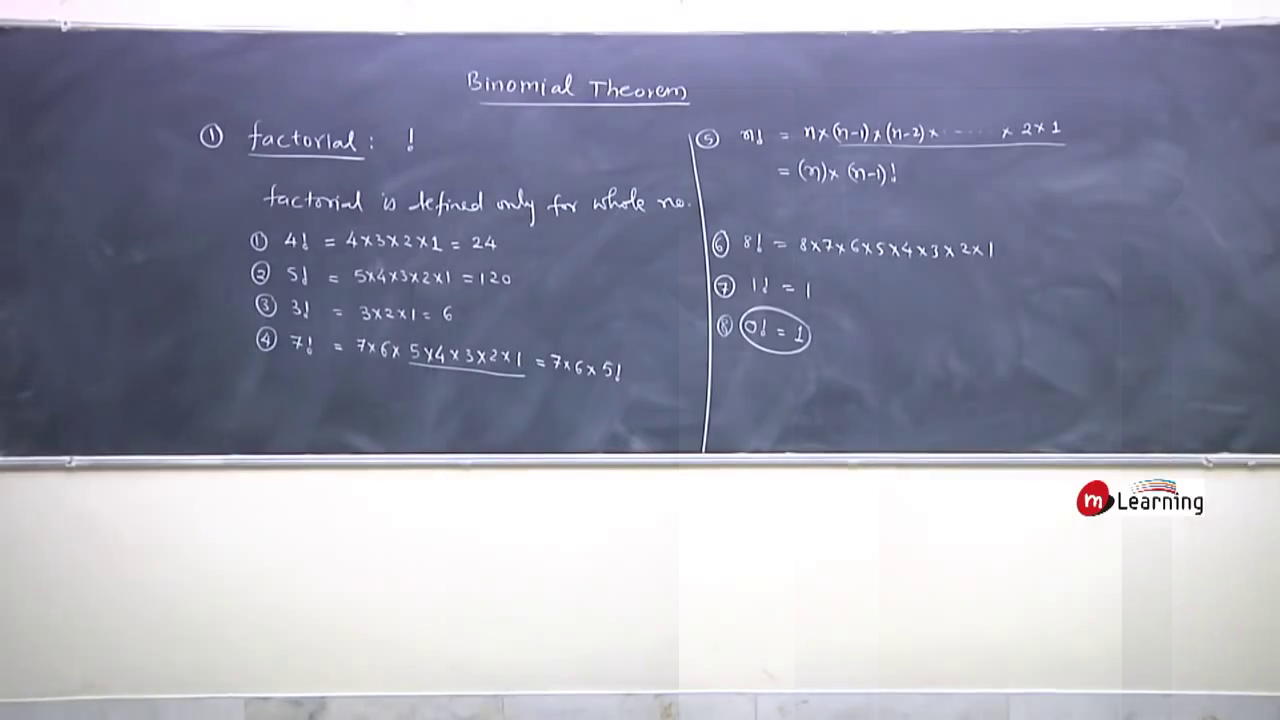 Binomial Theorem
① factorial : !
factorial is defined only for whole no.
① 4! = 4×3×2×1 = 24
② 5! = 5×4×3×2×1 = 120
③ 3! = 3×2×1 = 6
④ 7! = 7×6×5×4×3×2×1 = 7×6×5!
⑤ n! = n×(n-1)×(n-2)×......×2×1
= (n)×(n-1)!
⑥ 8! = 8×7×6×5×4×3×2×1
⑦ 1! = 1
⑧ 0! = 1
m Learning